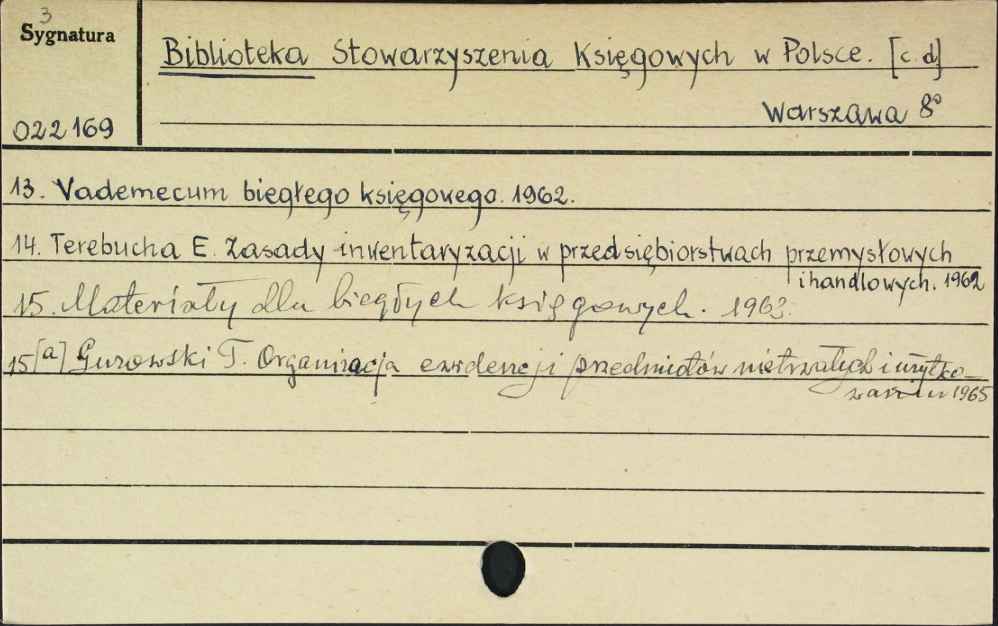 3
Sygnatura
Biblioteka Stowarzyszenia Księgowych w Polsce. [c.d]
Warszawa 8°
022169
13. Vademecum biegłego księgowego. 1962.
14. Terebucha E. Zasady inwentaryzacji w przedsiębiorstwach przemysłowych
i handlowych. 1962
15. Materiały dla biegłych księgowych. 1963.
15[a] Gurowski T. Organizacja ewidencji przedmiotów nietrwałych i użytko-
1965